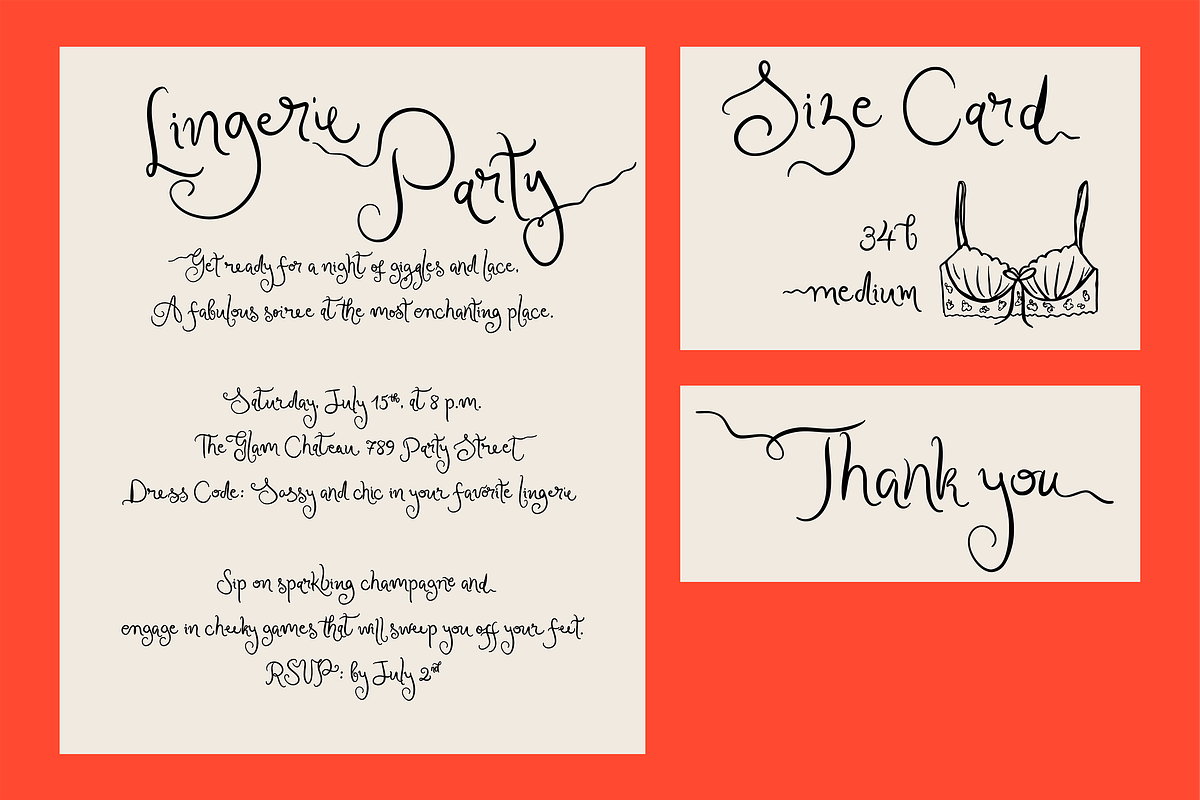 Lingerie
Party
Get ready for a night of giggles and lace.
A fabulous soiree at the most enchanting place.
Saturday, July 15th, at 8 p.m.
The Glam Chateau, 789 Party Street
Dress Code: Sassy and chic in your favorite lingerie
Sip on sparkling champagne and
engage in cheeky games that will sweep you off your feet.
RSVP: by July 2nd
Size Card
34b
medium
Thank you